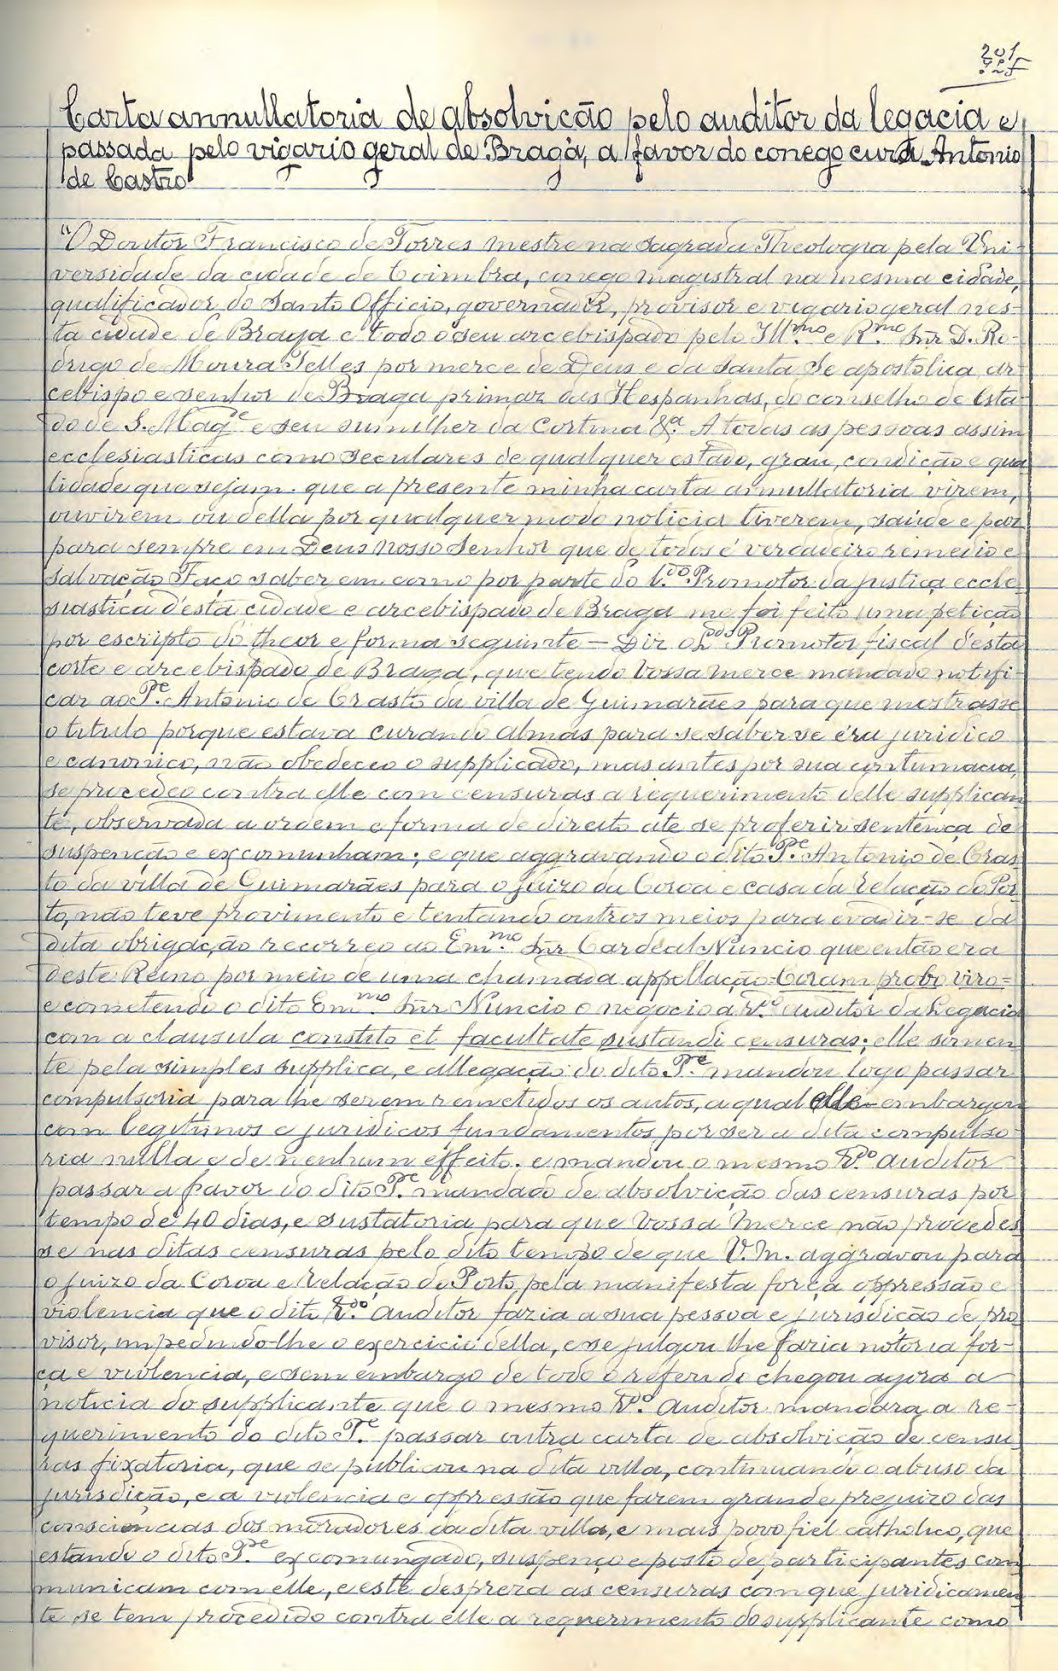 201
Carta annullatoria de absolvição pelo auditor da legacia e,
passada pelo vigario geral de Braga, a favor do conego cura Antonio
de Castro
"O Doutor Francisco de Torres mestre na sagrada Theologia pela Uni-
versidade da cidade de Coimbra, conego magistral na mesma cidade,
qualificador do Santo Officio, governador, provisor e vigario geral nes-
ta cidade de Braga e todo o seu arcebispado pelo Ill.mo e R.mo Snr D. Ro-
drigo de Moura Telles por merce de Deus e da santa Se apostolica, ar-
cebispo e senhor de Braga primaz das Hespanhas, do conselho de Esta-
do de S. Mag.e e seu sumilher da Cortina &.a A todas as pessoas assim
ecclesiasticas como seculares de qualquer estado, grau, condição e qua
lidade que sejam. que a presente minha carta annullatoria virem,
ouvirem ou della por qualquer modo noticia tiverem, saúde e paz
para sempre em Deus Nosso Senhor que de todos é verdadeiro remedio e
salvação Faço saber em como por parte do Promotor da justiça eccle-
siastica d'esta cidade e arcebispado de Braga me foi feito uma petição
por escripto do theor e forma seguinte — Diz o Promotor fiscal d'esta
corte e arcebispado de Braga, que tendo Vossa merce mandado notifi-
car ao P.e Antonio de Crasto da villa de Guimarães para que mostrasse
o titulo porque estava curando almas para se saber se era juridico
e canonico, não obedeceo o supplicado, mas antes por sua contumacia,
se procedeo contra elle com censuras a requerimento delle supplican
te, observada a ordem e forma de direito ate se proferir sentença de
suspenção e excomunham; e que aggravando o dito P.e Antonio de Cras-
to da villa de Guimarães para o juizo da Coroa e casa da Relação do Por
to, não teve provimento e tentando outros meios para evadir-se da
dita obrigação recorreo ao Em.mo Snr Cardeal Nuncio que então era
deste Reino por meio de uma chamada appellação Coram probo viro=
e cometendo o dito Em.mo Snr Nuncio o negocio a R.do auditor da Legacia
com a clausula constito et facultate sustandi censuras; elle sómen
te pela simples supplica, e allegação do dito P.e mandou logo passar
compulsoria para lhe serem remetidos os autos, a qual elle embargou
com legitimos e juridicos fundamentos por ser a dita compulso-
ria nulla e de nenhum effeito. e mandou o mesmo R.do auditor
passar a favor do dito P.e mandado de absolvição das censuras por
tempo de 40 dias, e sustatoria para que Vossa Merce não procedes
se nas ditas censuras pelo dito tempo de que V.M. aggravou para
o juizo da Coroa e Relação do Porto pela manifesta força oppressão e
violencia que o dito R.do Auditor fazia a sua pessoa e jurisdição de pro
visor, impedindo-lhe o exercicio della, e se julgou lhe fazia notoria for-
ça e violencia, e sem embargo de todo o referido chegou agora a
noticia do supplicante que o mesmo R.do Auditor mandara a re-
querimento do dito P.e passar outra carta de absolvição de censu
ras fixatoria, que se publicou na dita villa, continuando o abuso da
jurisdição, e a violencia e oppressão que fazem grande prejuizo das
consciencias dos moradores da dita villa, e mais povo fiel catholico, que
estando o dito P.e excomungado, suspenço e posto de participantes com
municam com elle, e este despreza as censuras com que juridicamen
te se tem procedido contra elle a requerimento do supplicante como